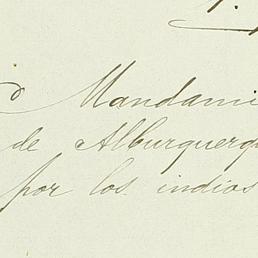 Mandami
de Alburquerq
por los indios